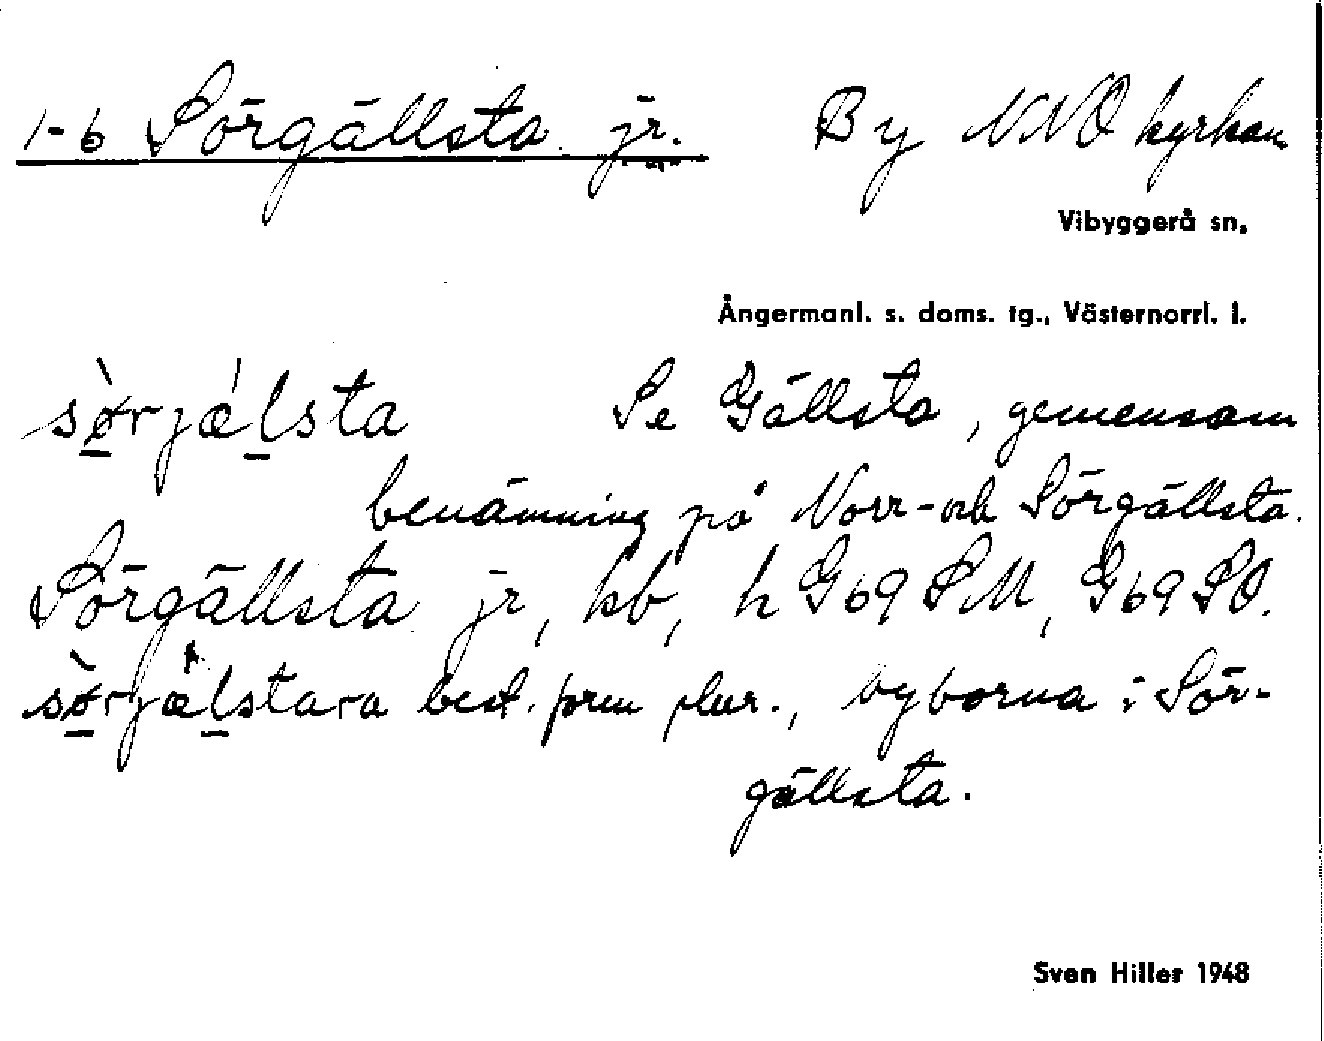 1-6 Sörgällsta jr. By NNO kyrkan
Vibyggerå sn.
Ångermanl. s. doms. tg., Västernorrl. l.
sø̀rjǽlsta Se Gällsta, gemensam
benämning på Norr- och Sörgällsta.
Sörgällsta jr, kb, h G69 SM, G69 SO.
sø̀rjælstara best. form plur., byborna i Sör-
gällsta.
Sven Hiller 1948